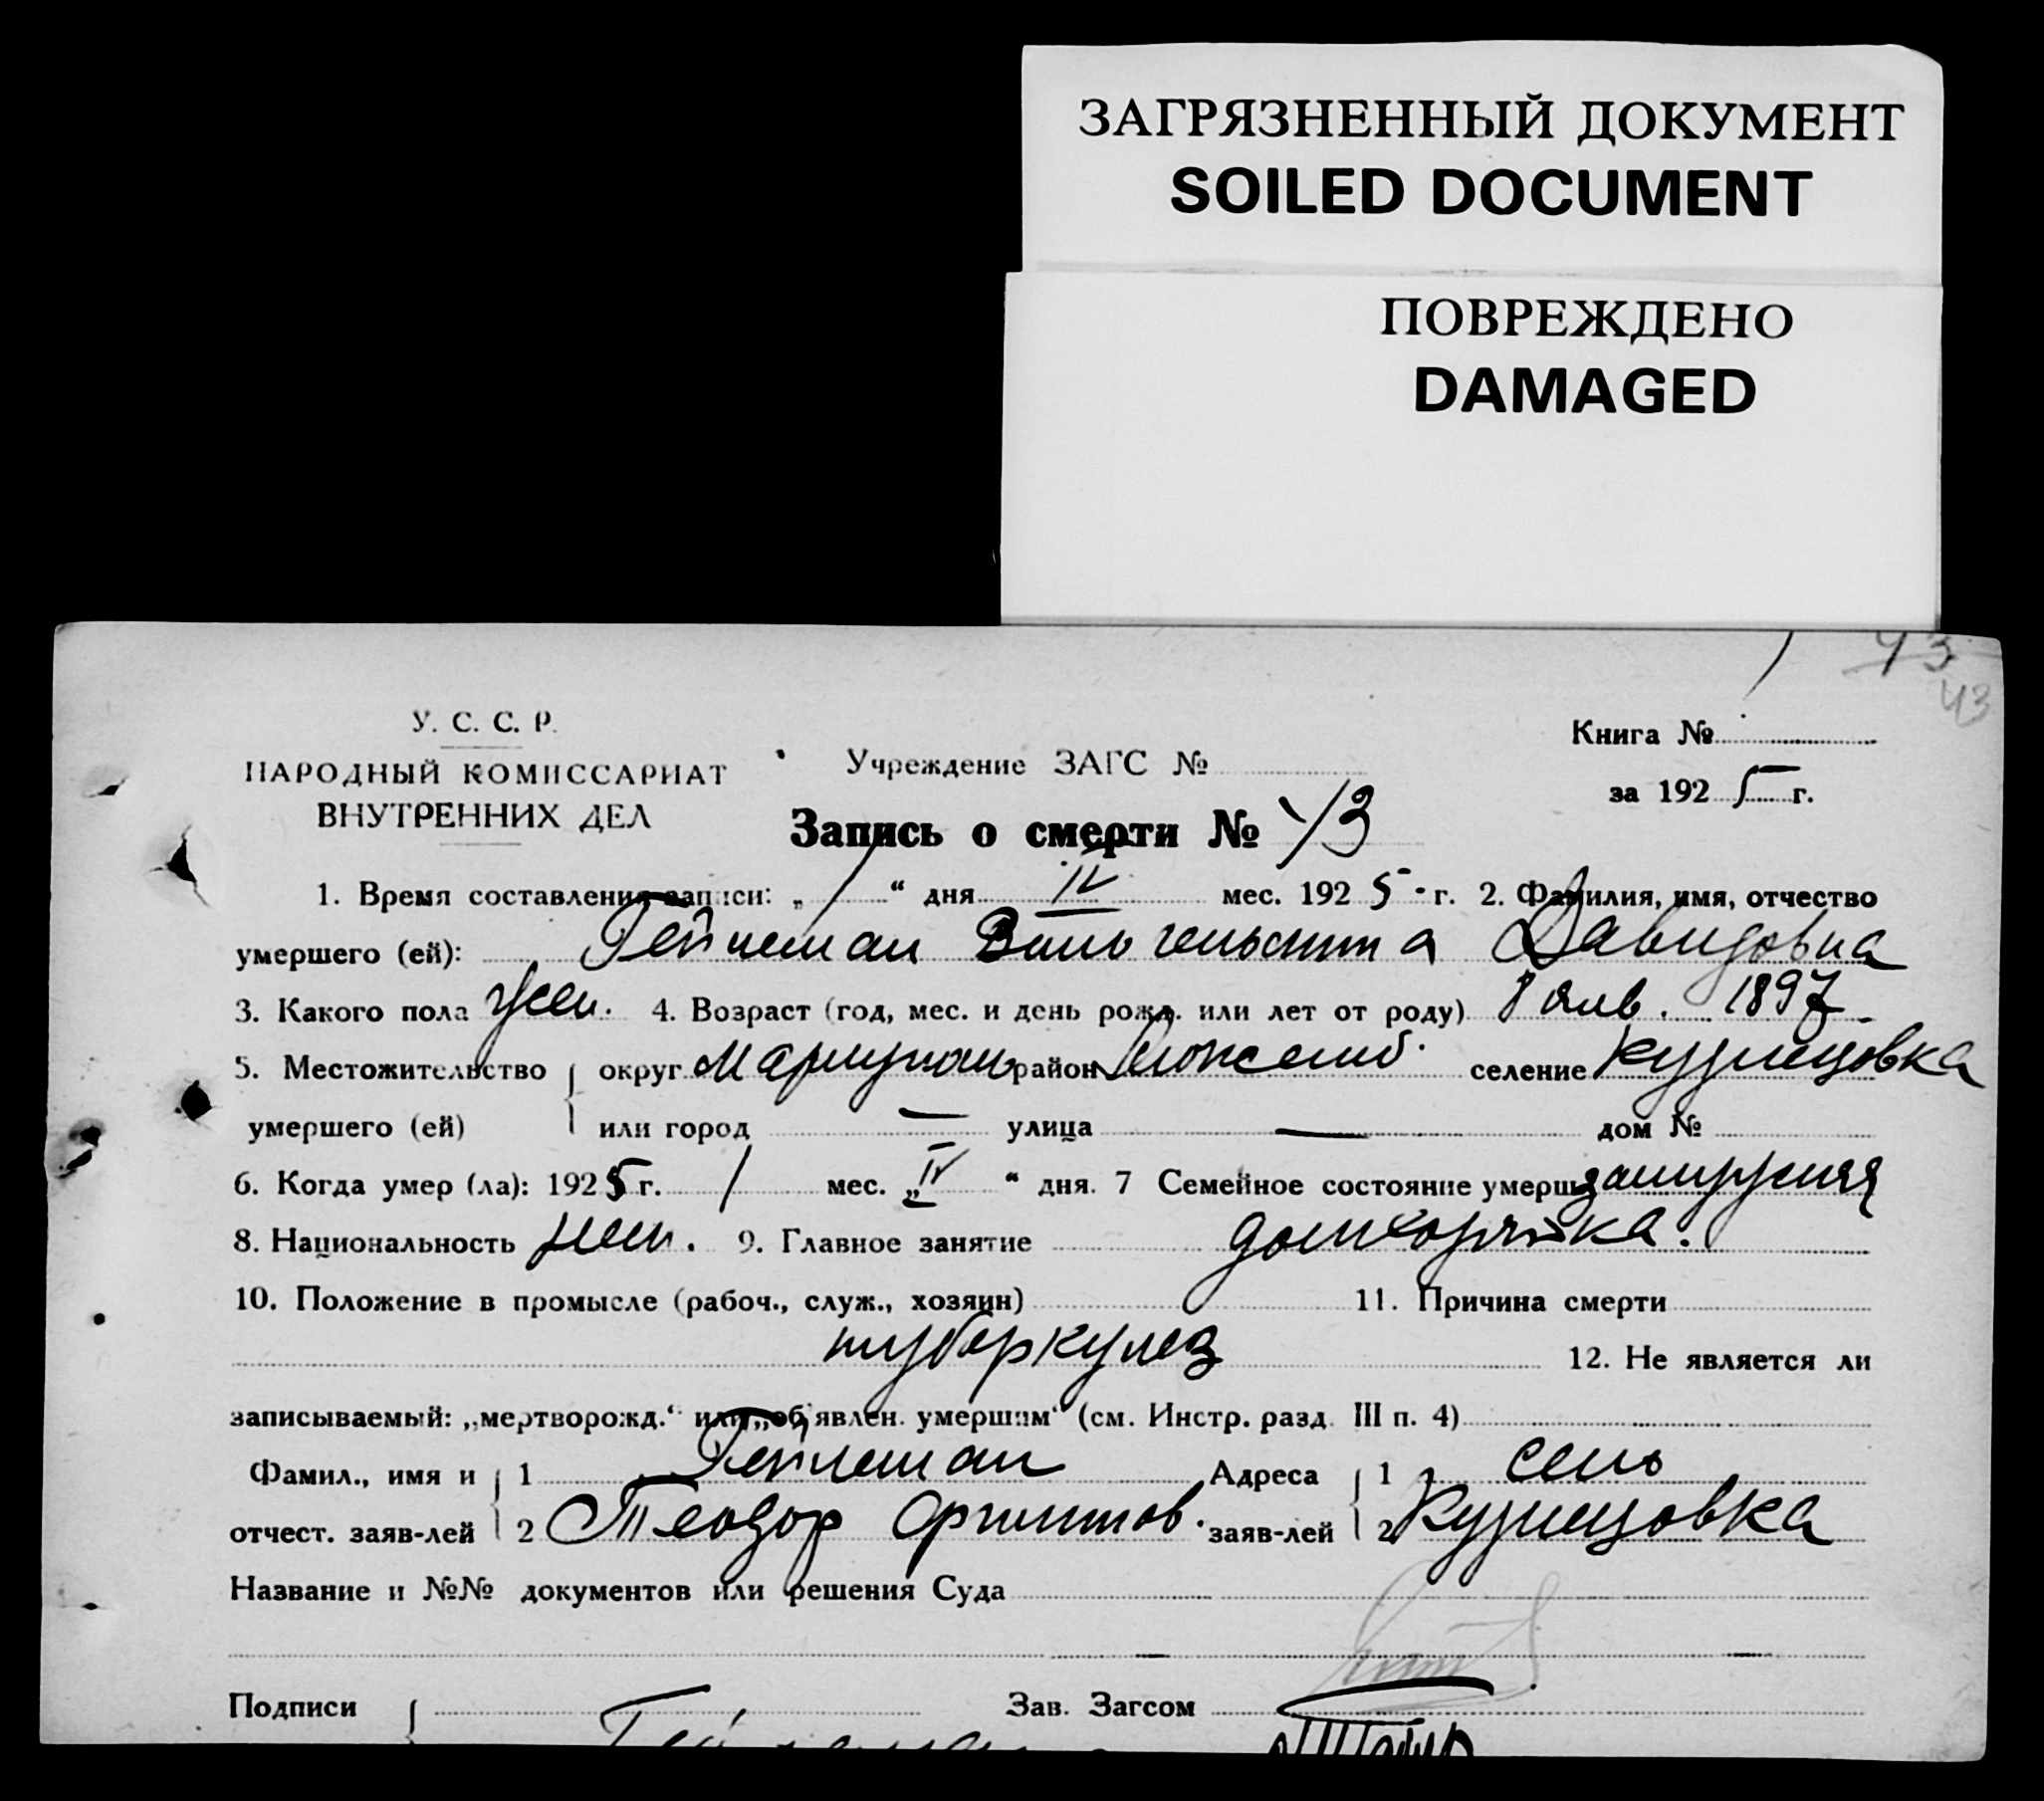 ЗАГРЯЗНЕННЫЙ ДОКУМЕНТ
SOILED DOCUMENT
ПОВРЕЖДЕНО
DAMAGED
43
43
У. С. С. Р.
НАРОДНЫЙ КОМИССАРИАТ
ВНУТРЕННИХ ДЕЛ
Учреждение ЗАГС №
Книга №
за 1925 г.
Запись о смерти № 43
1. Время составления записи: „ 1 “ дня IV мес. 1925 г. 2. Фамилия, имя, отчество
умершего (ей): Гейнеман Давидовна
3. Какого пола жен. 4. Возраст (год, мес. и день рожд. или лет от роду) 8 янв. 1897
5. Местожительство округ Мариупол район селение Кузнецовка
умершего (ей) или город — улица — дом №
6. Когда умер (ла): 1925 г. 1 мес. „ IV “ дня. 7 Семейное состояние умерш замужняя
8. Национальность нем. 9. Главное занятие домхозяйка.
10. Положение в промысле (рабоч., служ., хозяин) 11. Причина смерти
туберкулез 12. Не является ли
записываемый: „мертворожд.“ или „об'явлен. умершим“ (см. Инстр. разд. III п. 4)
Фамил., имя и 1 Гейнеман Адреса 1 село
отчест. заяв-лей 2 Теодор заяв-лей 2 Кузнецовка
Название и №№ документов или решения Суда
Подписи Зав. Загсом